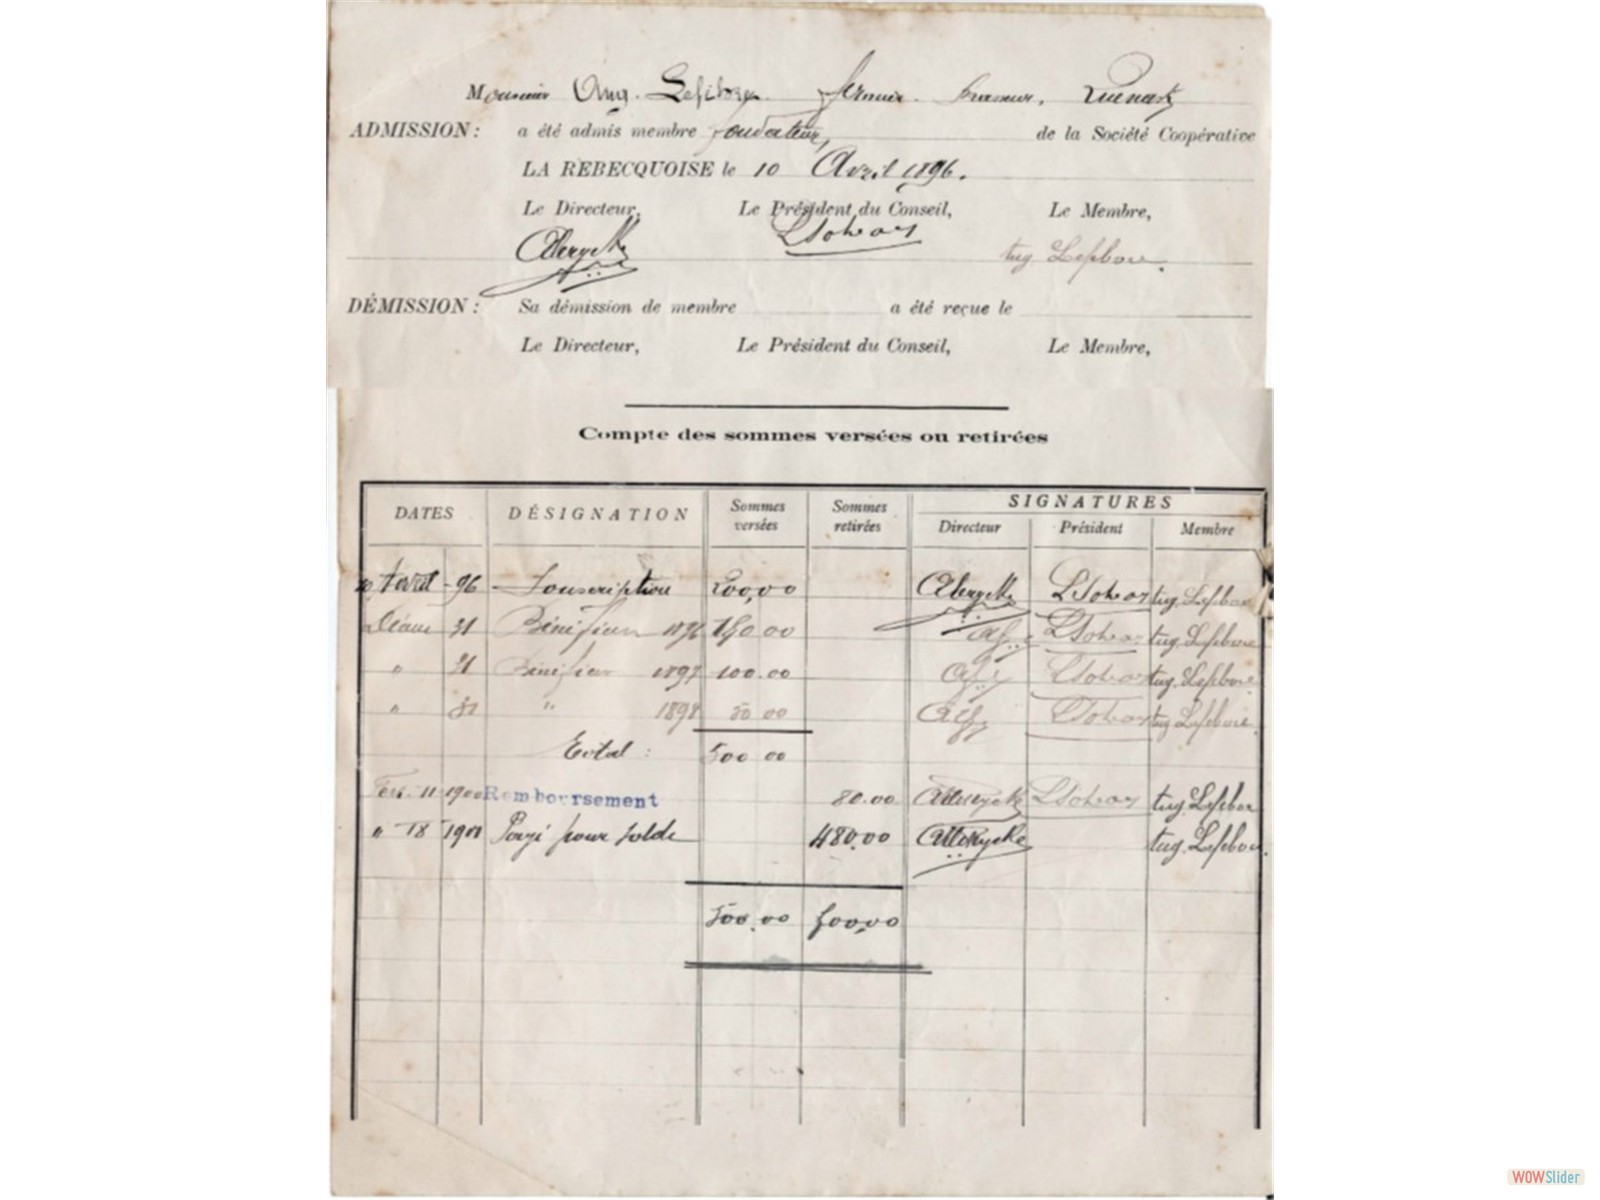 Monsieur Aug. Lefebvre. fermier. brasseur, Quenast
ADMISSION : a été admis membre fondateur, de la Société Coopérative
LA REBECQUOISE le 10 Avril 1896.
Le Directeur, Le Président du Conseil, Le Membre,
Aug. Lefebvre.
DÉMISSION : Sa démission de membre a été reçue le
Le Directeur, Le Président du Conseil, Le Membre,
Compte des sommes versées ou retirées
DATES DÉSIGNATION Sommes versées Sommes retirées SIGNATURES
Directeur Président Membre
10 Avril - 96 Souscription 200,00 Aug. Lefebvre
31 Bénéfices 1896 150.00 Aug. Lefebvre
" 31 Bénéfices 1897 100.00 Aug. Lefebvre
" 31 " 1898 50 00 Aug. Lefebvre
Total : 500 00
11 1900 Remboursement 80.00 Aug. Lefebvre
" 18 pour solde 480.00 Aug. Lefebvre
500.00 500,00
WOWSlider